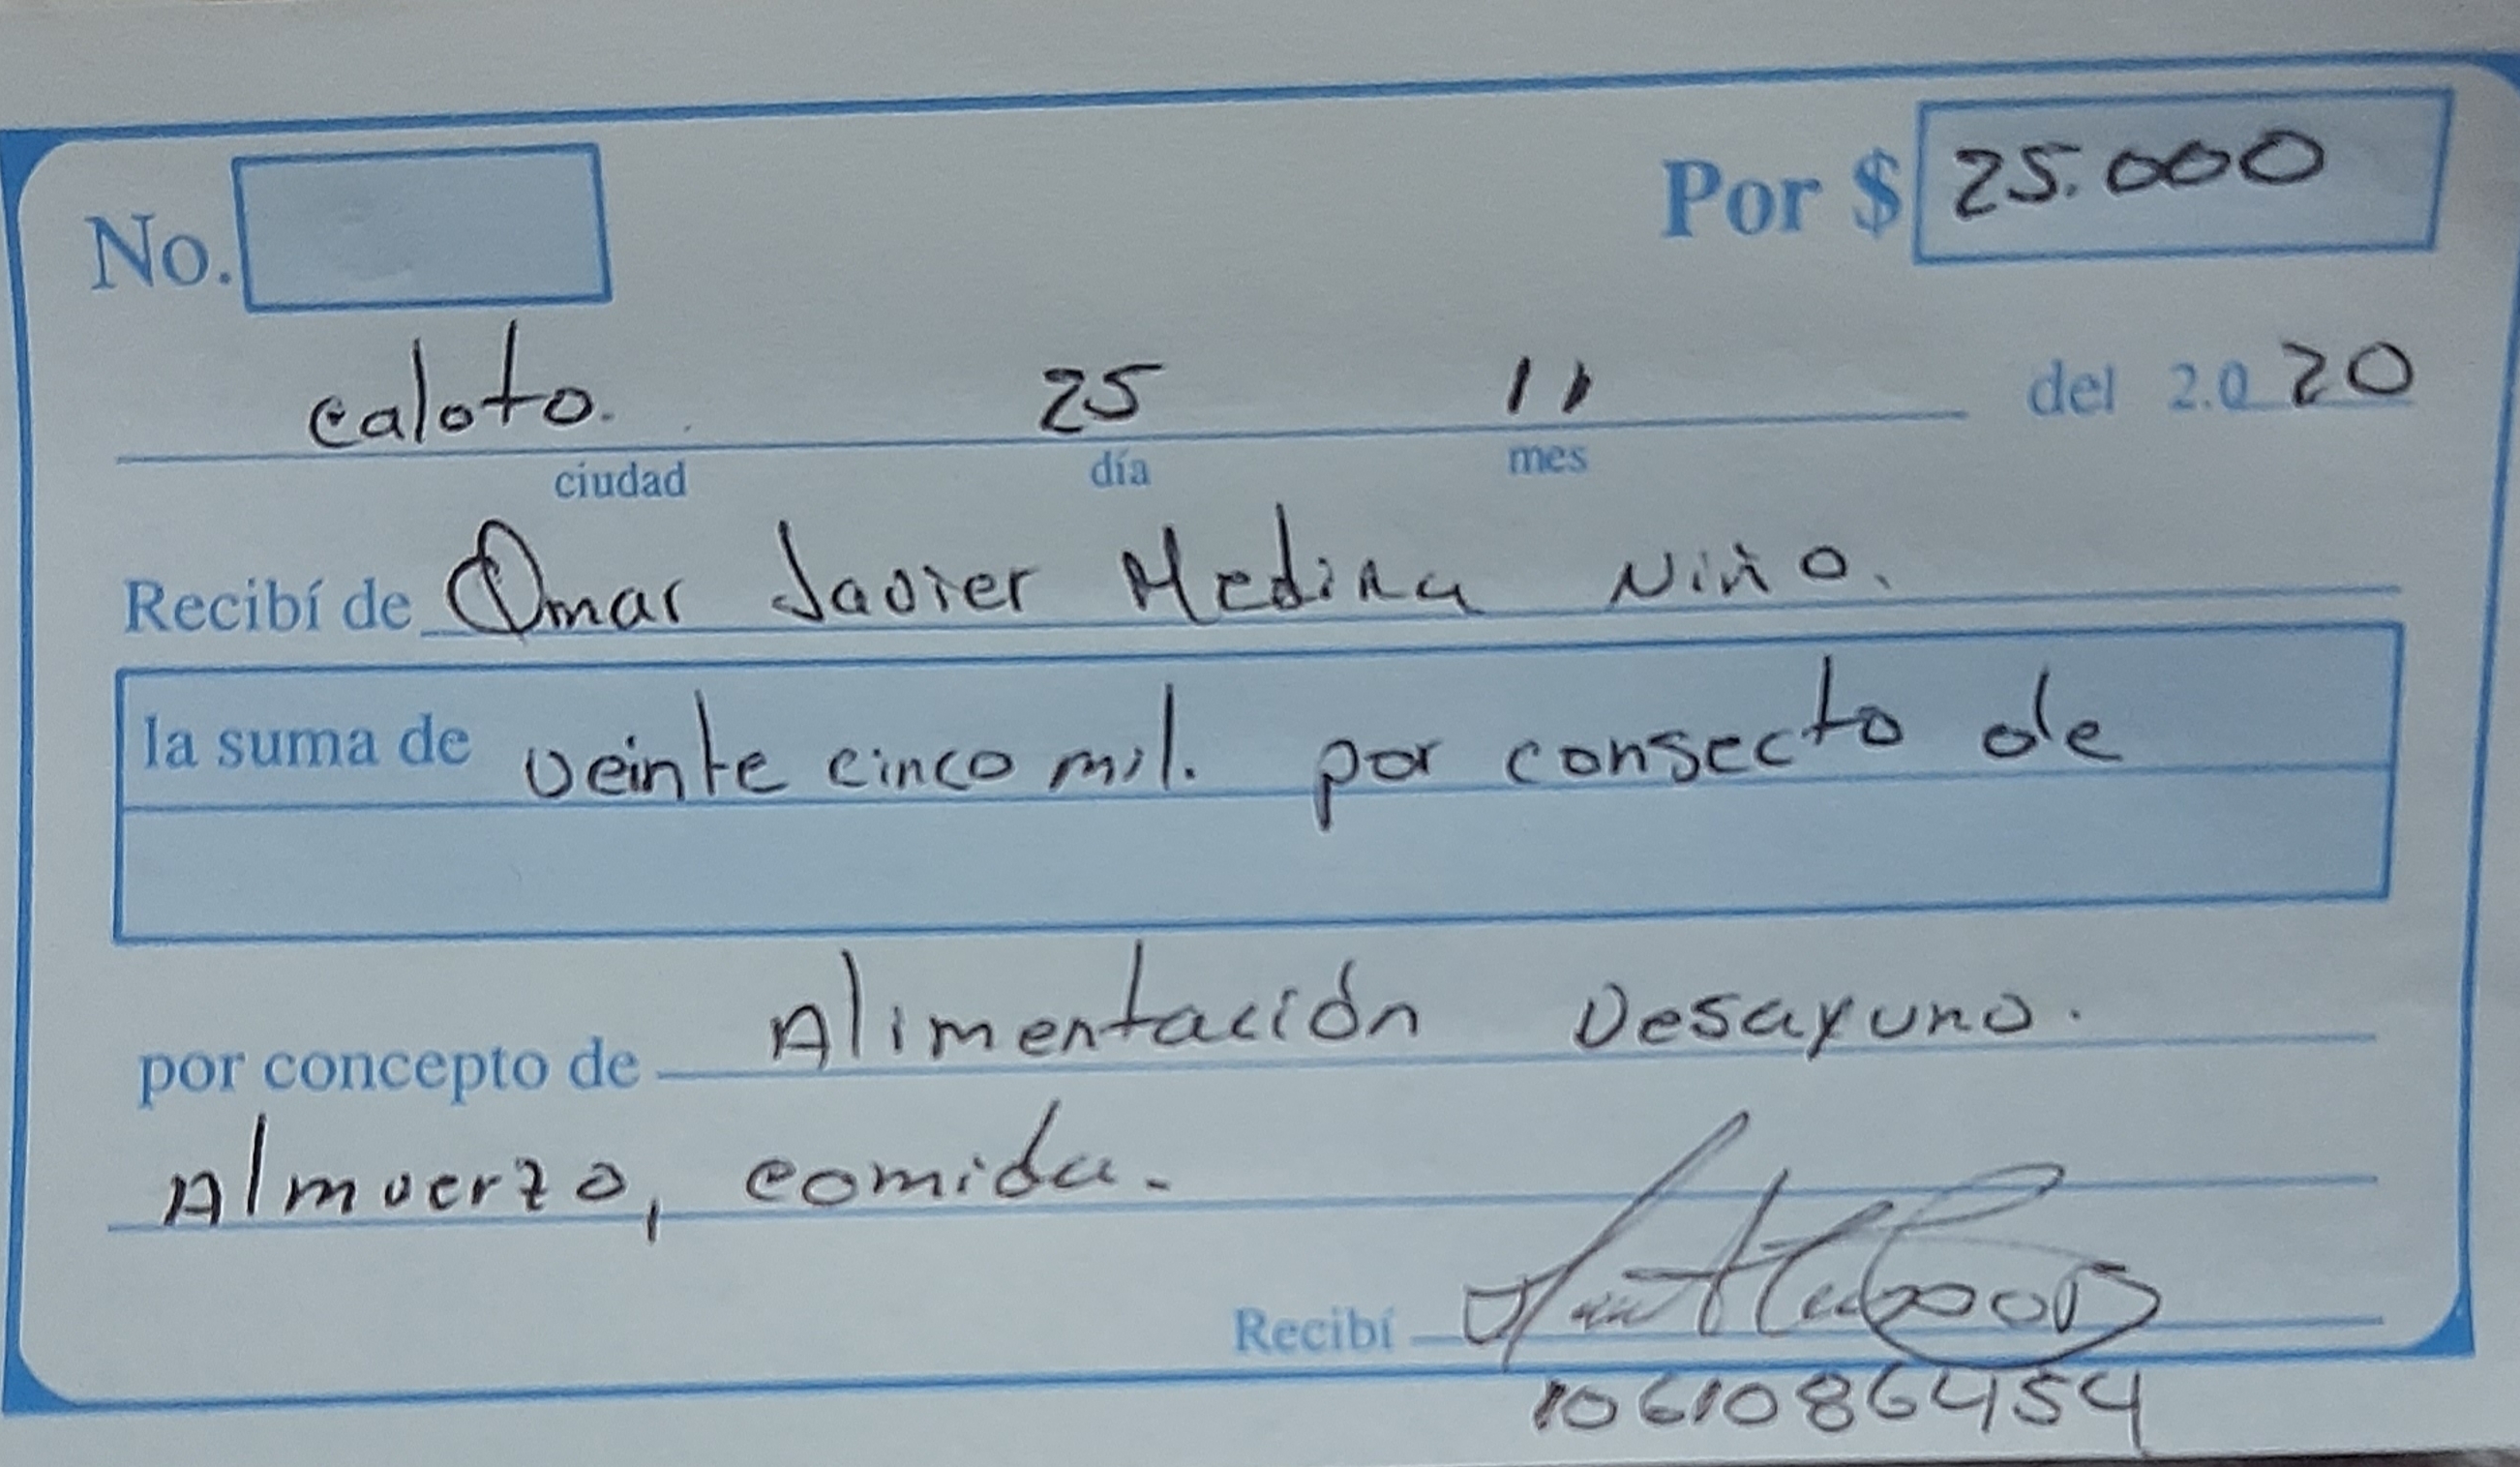 No. Por $ 25.000
caloto. 25 11 del 2.020
ciudad día mes
Recibí de Omar Javier Medina Niño.
la suma de veinte cinco mil. por consecto de
por concepto de Alimentación Desayuno.
Almuerzo, comida.
Recibí
1061086454